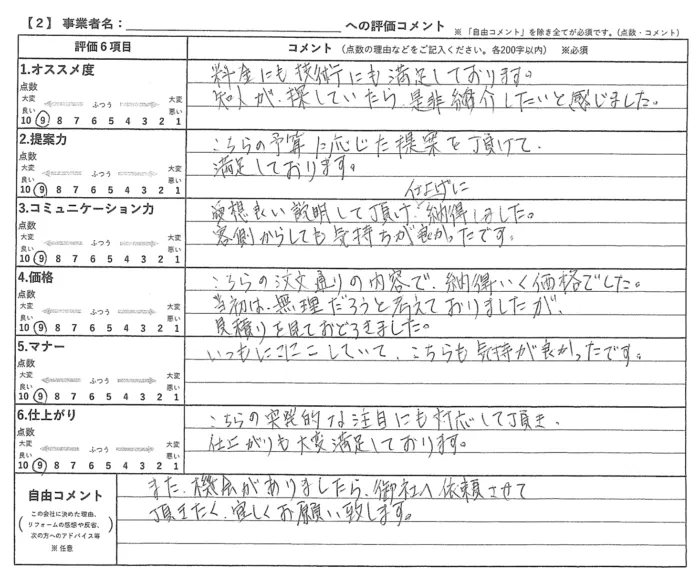 【2】 事業者名： への評価コメント ※「自由コメント」を除き全てが必須です。（点数・コメント）
評価6項目
コメント （点数の理由などをご記入ください。各200字以内） ※必須
1.オススメ度
点数
大変良い ふつう 大変悪い
10 9 8 7 6 5 4 3 2 1
料金にも技術にも満足しております。
知人が、探していたら、是非紹介したいと感じました。
2.提案力
点数
大変良い ふつう 大変悪い
10 9 8 7 6 5 4 3 2 1
こちらの予算に応じた提案を頂けて、
満足しております。
3.コミュニケーション力
点数
大変良い ふつう 大変悪い
10 9 8 7 6 5 4 3 2 1
仕上げに
愛想良い説明して頂け、納得しました。
客側からしても気持ちが良かったです。
4.価格
点数
大変良い ふつう 大変悪い
10 9 8 7 6 5 4 3 2 1
こちらの注文通りの内容で、納得いく価格でした。
当初は、無理だろうと考えておりましたが、
見積りを見ておどろきました。
5.マナー
点数
大変良い ふつう 大変悪い
10 9 8 7 6 5 4 3 2 1
いつもにこにこしていて、こちらも気持が良かったです。
6.仕上がり
点数
大変良い ふつう 大変悪い
10 9 8 7 6 5 4 3 2 1
こちらの突発的な注目にも対応して頂き、
仕上がりも大変満足しております。
自由コメント
（この会社に決めた理由、
リフォームの感想や反省、
次の方へのアドバイス等）
※任意
また、機会がありましたら、御社へ依頼させて
頂きたく、宜しくお願い致します。